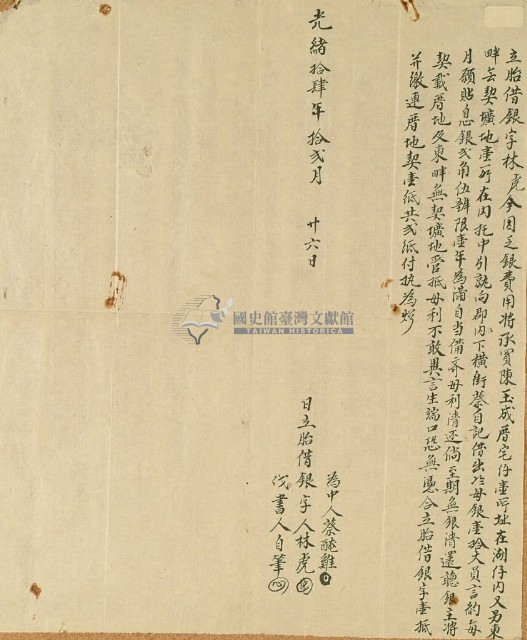 立胎借銀字林虎今因乏銀費用將承買陳玉成厝宅仔壹所址在湖仔內又另東
畔無契壙地壹所在內托中引就向郡內下橫街蔡自記借出冷母銀壹拾大員言約每
月願貼息銀弍角伍辦限壹年為滿自當備齊母利清还倘至期無銀清還聽銀主將
契載厝地及東畔無契壙地管抵母利不敢異言生端口恐無憑合立胎借銀字壹紙
并繳連厝地契壹紙共弍紙付执為炤
光緒拾肆年拾弍月 廿六日
為中人蔡醃雞
日立胎借銀字人林虎
代書人自筆
國史館臺灣文獻館
TAIWAN HISTORICA